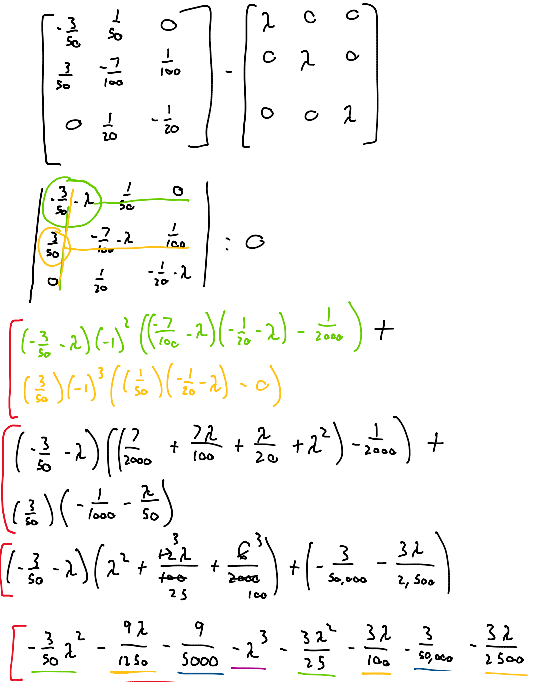 [ -3/50 1/50 0 ; 3/50 -7/100 1/100 ; 0 1/20 -1/20 ] - [ λ 0 0 ; 0 λ 0 ; 0 0 λ ]
| -3/50 - λ 1/50 0 ; 3/50 -7/100 - λ 1/100 ; 0 1/20 -1/20 - λ | : 0
[ (-3/50 - λ)(-1)^2 ((-7/100 - λ)(-1/20 - λ) - 1/2000) +
(3/50)(-1)^3 ((1/50)(-1/20 - λ) - 0)
[ (-3/50 - λ)((7/2000 + 7λ/100 + λ/20 + λ^2) - 1/2000) +
(3/50)(-1/1000 - λ/50)
[ (-3/50 - λ)(λ^2 + 12 3 λ/100 25 + 6 3/2000 100) + (-3/50,000 - 3λ/2,500)
[ -3/50 λ^2 - 9λ/1250 - 9/5000 - λ^3 - 3λ^2/25 - 3λ/100 - 3/50,000 - 3λ/2500